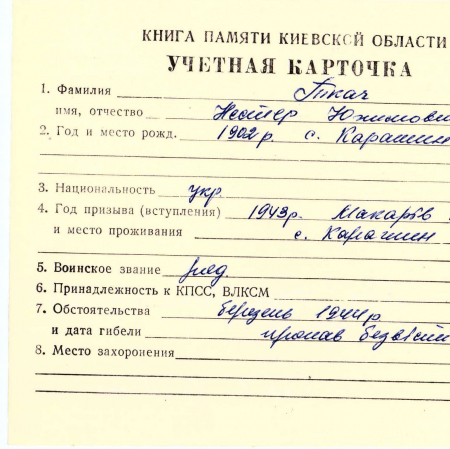 КНИГА ПАМЯТИ КИЕВСКОЙ ОБЛАСТИ
УЧЕТНАЯ КАРТОЧКА
1. Фамилия Ткач
имя, отчество Нестер Юхимови
2. Год и место рожд. 1902 р. с. Карашин
3. Национальность укр.
4. Год призыва (вступления) 1943р. Макарів
и место проживания с. Карашин
5. Воинское звание ряд.
6. Принадлежность к КПСС, ВЛКСМ
7. Обстоятельства березень 1944р
и дата гибели пропав безвісти
8. Место захоронения